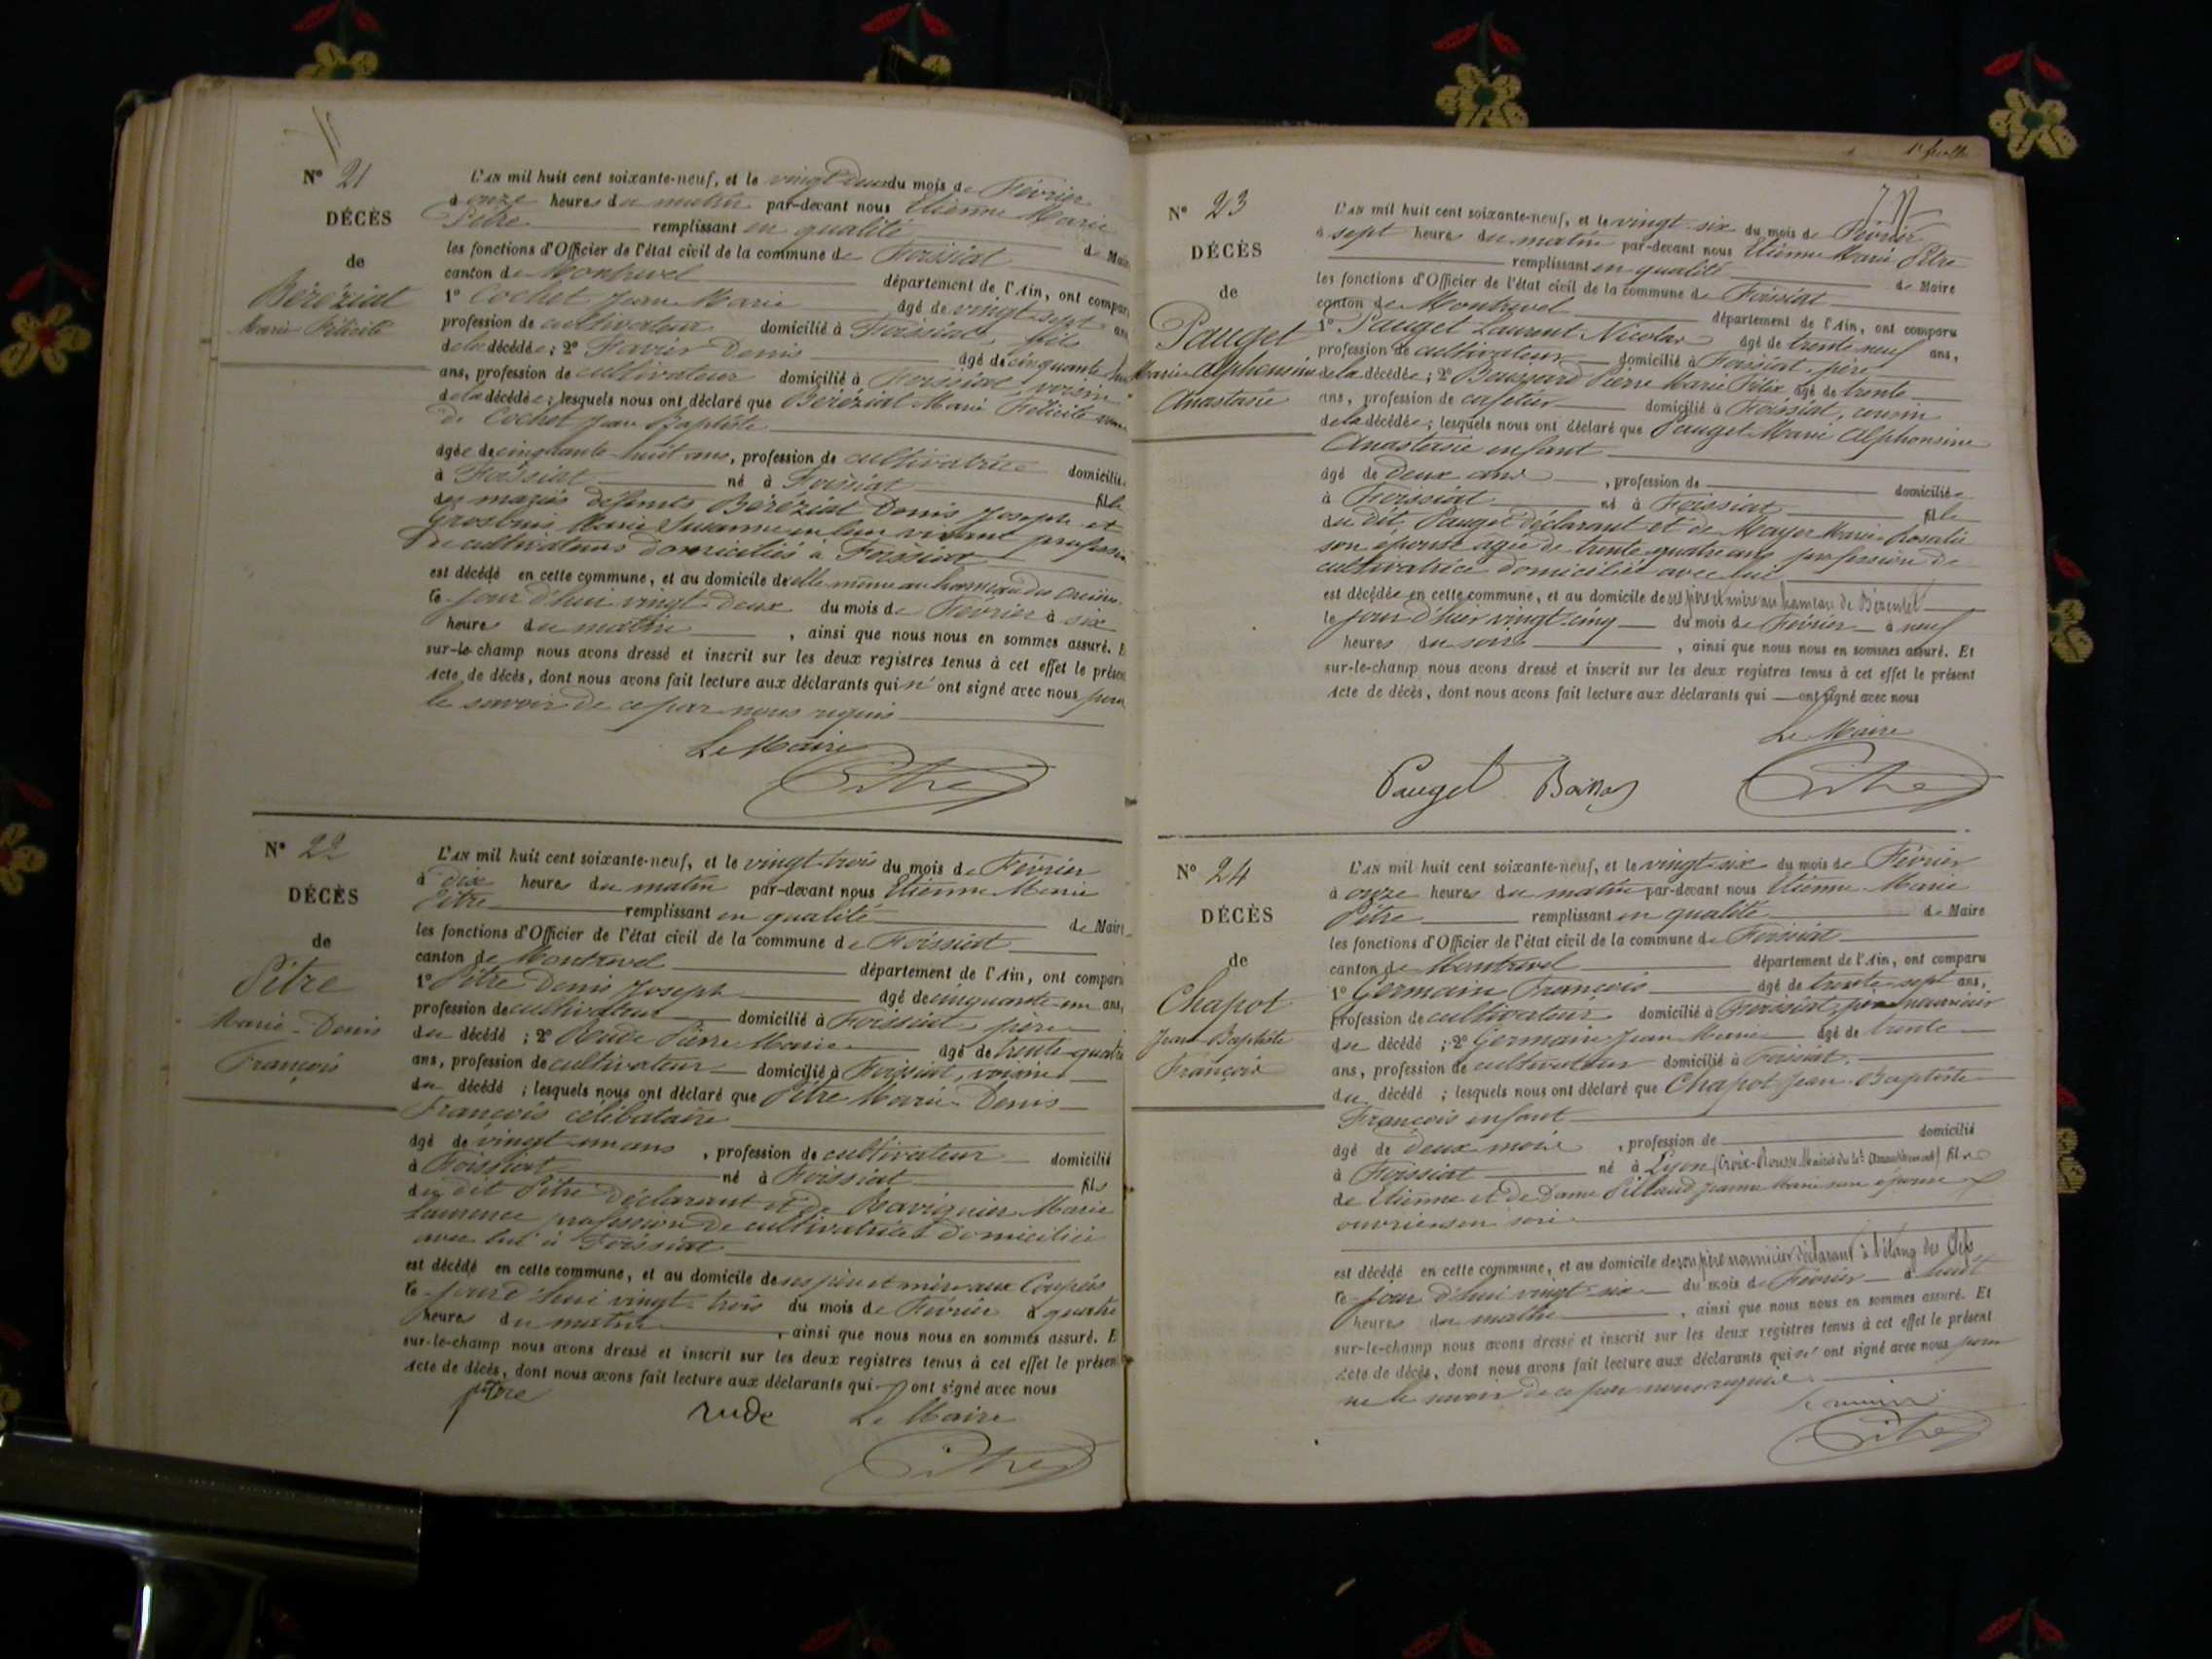 N° 21
DÉCÈS
de
Béréziat
Marie Félicité
L'AN mil huit cent soixante-neuf, et le vingt deux du mois de Février
à onze heures du matin par-devant nous Etienne Marie
Pitre remplissant en qualité de Maire
les fonctions d'Officier de l'état civil de la commune de Foissiat
canton de Montrevel département de l'Ain, ont comparu
1° Cochet Jean Marie âgé de vingt sept ans
profession de cultivateur domicilié à Foissiat, fils
de la décédée; 2° Favier Denis âgé de cinquante
ans, profession de cultivateur domicilié à Foissiat, voisin
de la décédée; lesquels nous ont déclaré que Béréziat Marie Félicité
de Cochet Jean Baptiste
âgée de cinquante-huit ans, profession de cultivatrice domiciliée
à Foissiat né à Foissiat fille
des mariés défunts Béréziat Denis Joseph et
Marie Susanne en leur vivant profession
de cultivateurs domiciliés à Foissiat
est décédé en cette commune, et au domicile de elle-même au hameau des
ce jour d'hui vingt-deux du mois de Février à six
heures du matin, ainsi que nous nous en sommes assuré. E
sur-le-champ nous avons dressé et inscrit sur les deux registres tenus à cet effet le présen
Acte de décès, dont nous avons fait lecture aux déclarants qui n'ont signé avec nous pour
le savoir de ce par nous requis
Le Maire
Pitre
N° 22
DÉCÈS
de
Pitre
Marie-Denis
François
L'AN mil huit cent soixante-neuf, et le vingt-trois du mois de Février
à dix heures du matin par-devant nous Etienne Marie
Pitre remplissant en qualité de Maire
les fonctions d'Officier de l'état civil de la commune de Foissiat
canton de Montrevel département de l'Ain, ont comparu
1° Pitre Denis Joseph âgé de cinquante-un ans,
profession de cultivateur domicilié à Foissiat, père
du décédé; 2° Rude Pierre Marie âgé de trente-quatre
ans, profession de cultivateur domicilié à Foissiat, voisin
du décédé; lesquels nous ont déclaré que Pitre Marie-Denis
François célibataire
âgé de vingt-un ans, profession de cultivateur domicilié
à Foissiat né à Foissiat fils
du dit Pitre déclarant et de Ravignier Marie
Laurence profession de cultivatrice domiciliée
avec lui à Foissiat
est décédé en cette commune, et au domicile de ses père et mère aux Coupées
ce jour d'hui vingt-trois du mois de Février à quatre
heures du matin, ainsi que nous nous en sommes assuré. E
sur-le-champ nous avons dressé et inscrit sur les deux registres tenus à cet effet le présen
Acte de décès, dont nous avons fait lecture aux déclarants qui ont signé avec nous
pitre rude Le Maire
Pitre
N° 23
DÉCÈS
de
Pauget
Marie Alphonsine
Anastasie
L'AN mil huit cent soixante-neuf, et le vingt-six du mois de Février
à sept heures du matin par-devant nous Etienne Marie Pitre
remplissant en qualité de Maire
les fonctions d'Officier de l'état civil de la commune de Foissiat
canton de Montrevel département de l'Ain, ont comparu
1° Pauget Laurent Nicolas âgé de trente neuf ans,
profession de cultivateur domicilié à Foissiat, père
de la décédée; 2° Pierre Marie Félix âgé de trente
ans, profession de cafetier domicilié à Foissiat, cousin
de la décédée; lesquels nous ont déclaré que Pauget Marie Alphonsine
Anastasie enfant
âgé de deux ans, profession de domiciliée
à Foissiat né à Foissiat fille
du dit Pauget déclarant et de Mayer Marie-Rosalie
son épouse agée de trente-quatre ans profession de
cultivatrice domiciliée avec lui
est décédée en cette commune, et au domicile de ses père et mère au hameau de
le jour d'hier vingt-cinq du mois de Février à neuf
heures du soir, ainsi que nous nous en sommes assuré. Et
sur-le-champ nous avons dressé et inscrit sur les deux registres tenus à cet effet le présent
Acte de décès, dont nous avons fait lecture aux déclarants qui ont signé avec nous
Le Maire
Pauget Pitre
N° 24
DÉCÈS
de
Chapot
Jean-Baptiste
François
L'AN mil huit cent soixante-neuf, et le vingt-six du mois de Février
à onze heures du matin par-devant nous Etienne Marie
Pitre remplissant en qualité de Maire
les fonctions d'Officier de l'état civil de la commune de Foissiat
canton de Montrevel département de l'Ain, ont comparu
1° Germain François âgé de trente-sept ans,
profession de cultivateur domicilié à Foissiat, père nourricier
du décédé; 2° Germain Jean Marie âgé de trente
ans, profession de cultivateur domicilié à Foissiat,
du décédé; lesquels nous ont déclaré que Chapot Jean-Baptiste
François enfant
âgé de deux mois, profession de domicilié
à Foissiat né à Lyon (Croix-Rousse Mairie du 4e Arrondissement) fils
de Etienne et de Dame Pillaud Jeanne Marie son épouse
ouvriers en soie
est décédé en cette commune, et au domicile de son père nourricier déclarant à l'étang des Clefs
ce jour d'hui vingt-six du mois de Février à huit
heures du matin, ainsi que nous nous en sommes assuré. Et
sur-le-champ nous avons dressé et inscrit sur les deux registres tenus à cet effet le présent
Acte de décès, dont nous avons fait lecture aux déclarants qui n'ont signé avec nous pour
ne le savoir de ce par nous requis
Le maire
Pitre